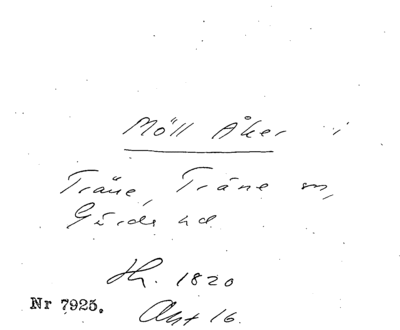 Möll Åker i
Träne, Träne sn,
Gärds hd
1820
Nr 7925.
Akt 16.